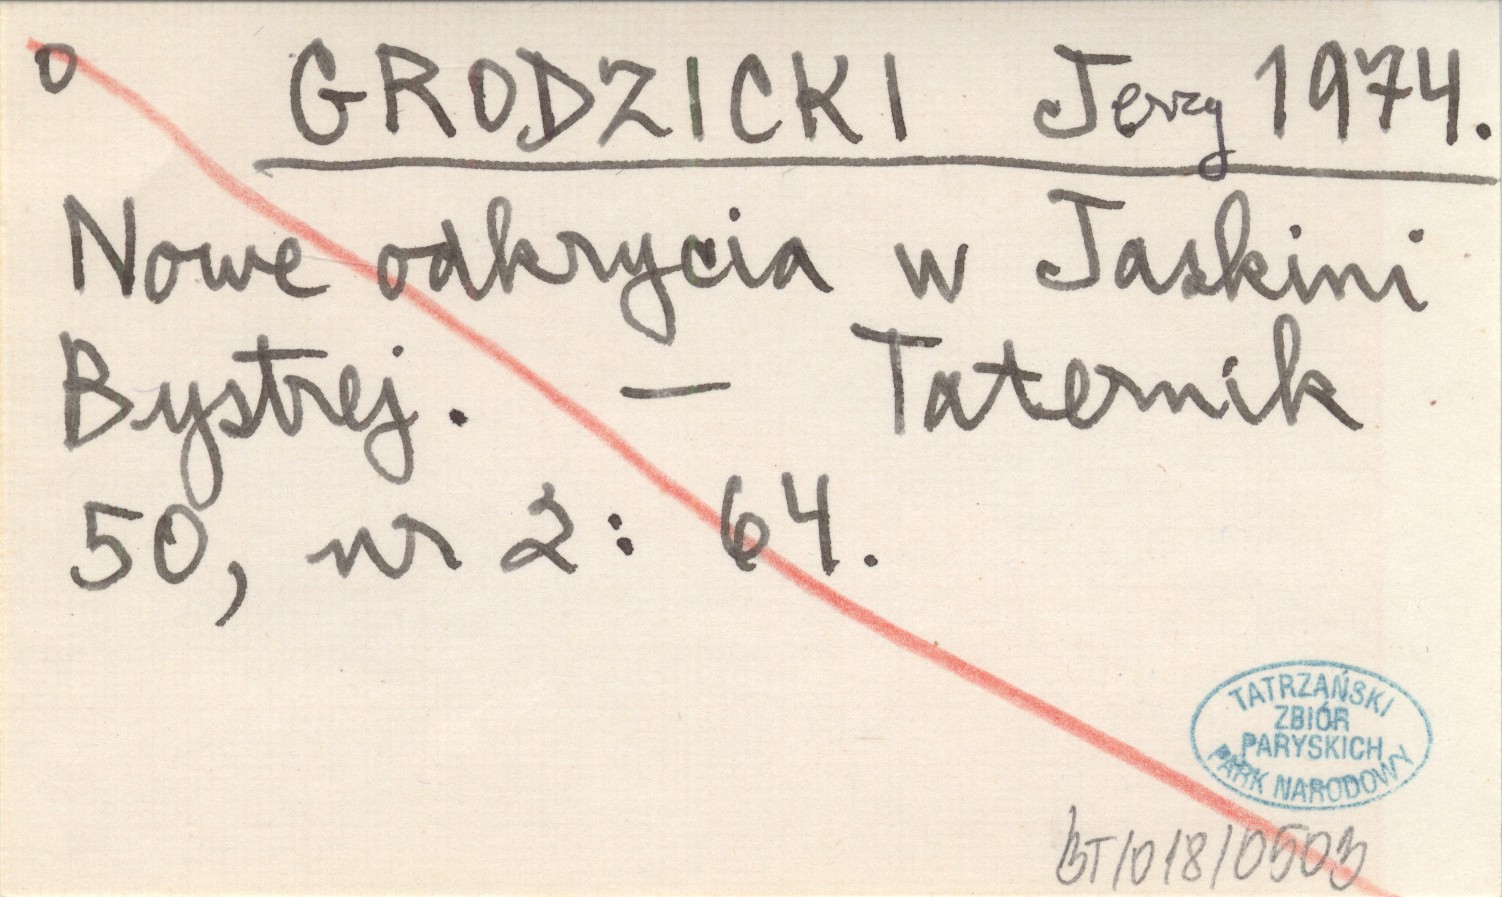 o GRODZICKI Jerzy 1974.
Nowe odkrycia w Jaskini
Bystrej. — Taternik
50, nr 2: 64.
TATRZAŃSKI
ZBIÓR
PARYSKICH
PARK NARODOWY
BT/018/0503